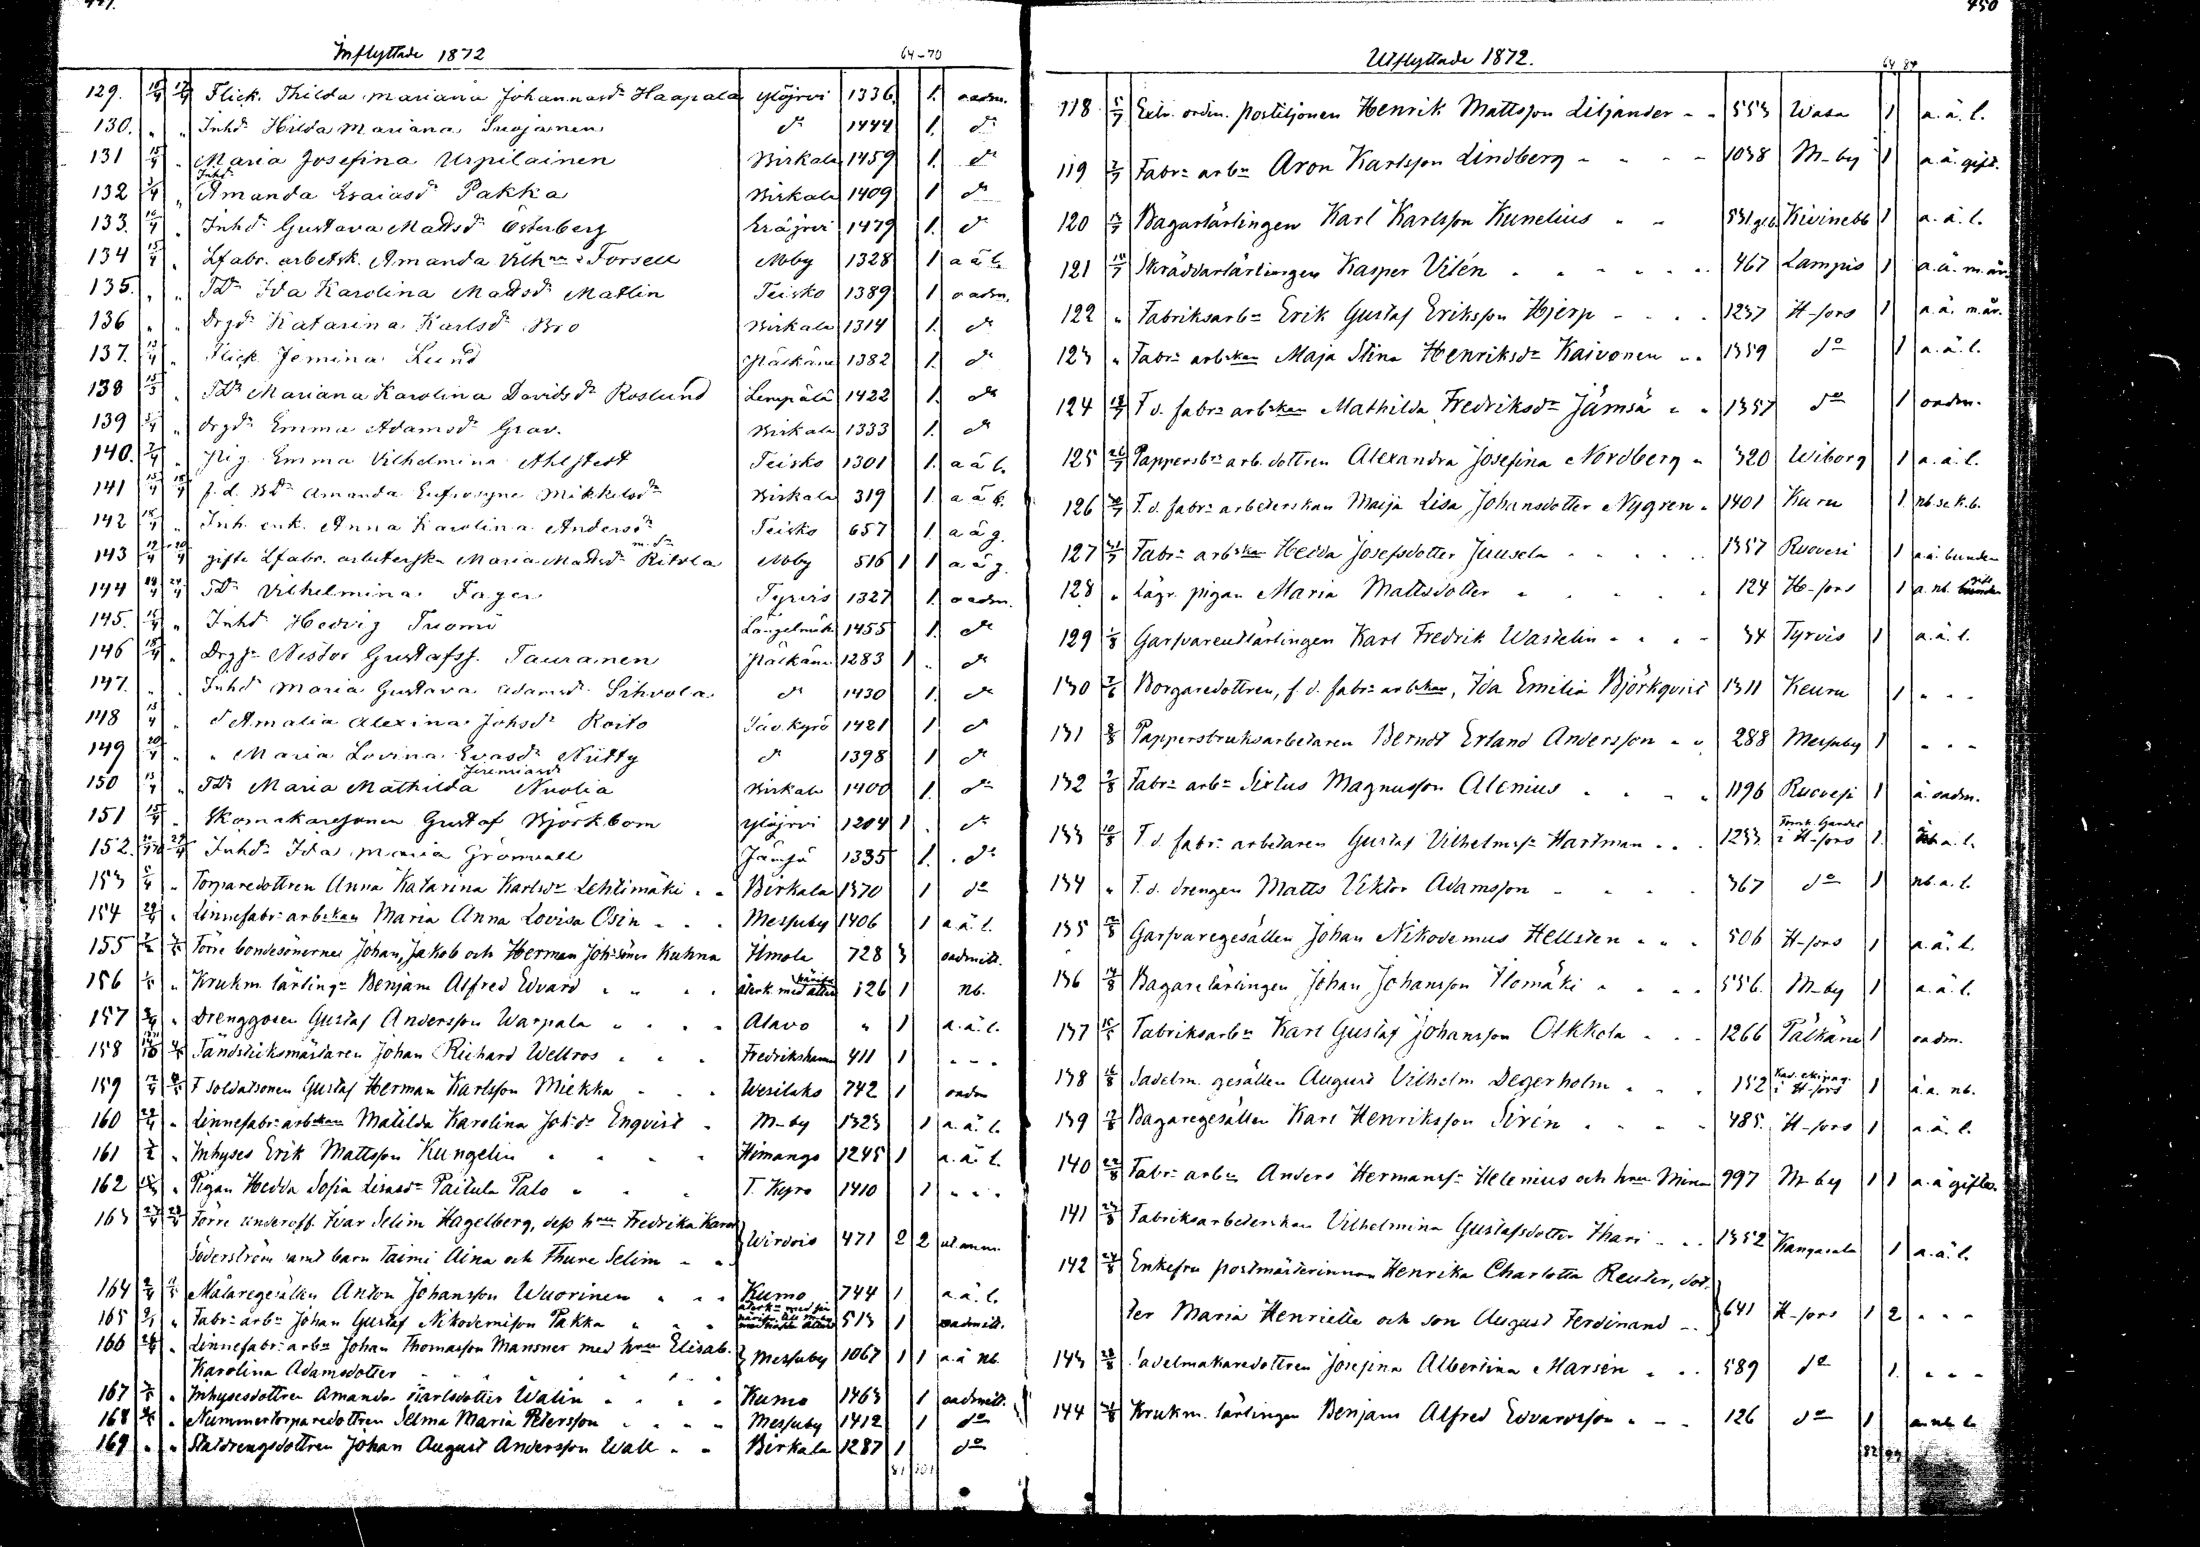 Inflyttade 1872 64-70
129. Flick. Thilda Mariana Johannasdr Haapala Ylöjrvi 1336 1. oadm.
130. " " Inhdr Hilda Mariana Suojanen do 1444 1. do
131 15/4 " Maria Josefina Urpilainen Birkala 1459 1. do
132 " Inhdr Amanda Esaiasdr Pakka Birkala 1409 1 do
133. " Inhdr Gustava Mattsdr Österberg Eräjrvi 1479 1. do
134 15/4 " Lfabr. arbetsk. Amanda Forsell Mby 1328 1 a ä l.
135. " " Tdr Ida Karolina Mattsdr Matlin Teisko 1389 1 oadm.
136 " " Drgdr Katarina Karlsdr Bro Birkala 1314 1. do
137. " Flick. Jemina Lund Pälkäne 1382 1. do
138 " Tdr Mariana Karolina Davidsdr Roslund Lempälä 1422 1. do
139 " drgdr Emma Adamsdr Grav. Birkala 1333 1. do
140. " pig. Emma Vilhelmina Ahlstedt Teisko 1301 1. a ä l.
141 f.d. Bdr Amanda Eufrosyne Mikkelsdr Birkala 319 1. a ä l.
142 " Inh. enk. Anna Karolina Andersdr Teisko 657 1 a ä g.
143 gifta Lfabr. arbeterska Maria Mattsdr Ritola Mby 516 1 1 a ä g.
144 Tdr Vilhelmina Fager Tyrvis 1327 1. oadm.
145. " Inhdr Hedvig Tuomi Längelmäki 1455 1. do
146 " Drgg Nestor Gustafss. Tauranen Pälkäne 1283 1 " do
147. " " Inhdr Maria Gustava Adamsdr Sihvola do 1430 1. do
148 " Amalia Alexina Johsdr Koito Tavkyrö 1421 1 do
149 20/4 " " Maria Lovina Evasdr Niitty do 1398 1 do
150 " Tdr Maria Mathilda Jeremiasdr Nuolia Birkala 1400 1. do
151 15/4 " Skomakaresonen Gustaf Björkbom Ylöjrvi 1204 1 . do
152. Inhdr Ida Maria Grönvall Jämsä 1335 1. . do
153 " Torparedottren Anna Katarina Karlsdr Lehtimäki " " Birkala 1370 1 do
154 " Linnefabr arbskan Maria Anna Lovisa Osin " " Messuby 1406 1 a.ä.l.
155 Förre bondesönerna Johan, Jakob och Herman Johssöner Kuhna Ilmola 728 3 oadmitt.
156 " Krukm. lärling Benjam Alfred Edvard " " " 126 1 nb.
157 " Drenggosen Gustaf Andersson Warpala " " " " Alavo " 1 a.ä.l.
158 Tändsticksmästaren Johan Richard Wellros " " " Fredrikshamn 411 1 " " "
159 F soldatsonen Gustaf Herman Karlsson Miekka " " Wesilaks 742 1 oadm
160 " Linnefabr. arbskan Matilda Karolina Johdr Enqvist " M-by 1323 1 a.ä.l.
161 " Inhyses Erik Mattsson Kungelin " " " " Himango 1245 1 a.ä.l.
162 " Pigan Hedda Sofia Lisasdr Paitula Palo " " " T. Kyro 1410 1 " " "
163 Förre underoff. Ivar Selim Hagelberg, dess hru Fredrika Karol
Söderström samt barn Taimi Aina och Thure Selim " " Wirdois 471 2 2 ut.anm.
164 Målaregesällen Anton Johansson Wuorinen " " " Kumo 744 1 a.ä.l.
165 " Fabr arb Johan Gustaf Nikodemsson Pakka " " " 513 1 oadmitt.
166 " Linnefabr. arb Johan Thomasson Mansner med hru Elisab.
Karolina Adamsdotter " " " " " Messuby 1067 1 1 a.ä nb.
167 " Inhysesdottren Amanda Karlsdotter Walin " " " " Kumo 1463 1 oadmitt.
168 " Nummertorparedottren Selma Maria Petersson " " " " Messuby 1412 1 do
169 " " Statdrengsdottren Johan August Andersson Wall " " Birkala 1287 1 do
450
Utflyttade 1872. 64 84
118 5/7 Extr. ordin. postiljonen Henrik Mattsson Liljander " " 553 Wasa 1 a.ä.l.
119 Fabr arb Aron Karlsson Lindberg " " " " 1038 M-by 1 a.ä. gift.
120 Bagarlärlingen Karl Karlsson Kunelius " " 531 Kivinebb 1 a.ä.l.
121 Skräddarlärlingen Kasper Vilén " " " " " 467 Lampis 1 a.ä. m.är.
122 " Fabriksarb Erik Gustaf Eriksson Hjerp " " " " 1237 H-fors 1 a.ä. m.är.
123 " Fabr arbskan Maja Stina Henriksdr Kaivonen " " 1359 do 1 a.ä.l.
124 F d. fabr arbskan Mathilda Fredriksdr Jämsä " " 1357 do 1 oadm.
125 Pappersbr arb. dottren Alexandra Josefina Nordberg " 320 Wiborg 1 a.ä.l.
126 F.d. fabr arbeterskan Maija Lisa Johansdotter Nygren " 1401 Kuru 1
127 Fabr arbskan Hedda Josefsdotter Juusela " " " " 1357 Ruovesi 1 a.ä. bunden
128 " Lägr. pigan Maria Mattsdotter " " " " " 124 H-fors 1 a. nb.
129 Garfvarelärlingen Karl Fredrik Wastelin " " " " 34 Tyrvis 1 a.ä.l.
130 Borgaredottren, f.d. fabr arbskan, Ida Emilia Björkqvist 1311 Keuru 1 " " "
131 Pappersbruksarbetaren Berndt Erland Andersson " " 288 Messuby 1 " " "
132 Fabr arb Sixtus Magnusson Alenius " " " " 1196 Ruovesi 1 ä. oadm.
133 F d. fabr arbetaren Gustaf Vilhelmss Hartman " " " 1233 i H-fors 1 a.l.
134 " F.d. drengen Matts Viktor Adamsson " " " " 367 do 1 nb.a.l.
135 Garfvaregesällen Johan Nikodemus Hellsten " " " 506 H-fors 1 a.ä.l.
136 Bagarelärlingen Johan Johansson Ilomäki " " " " 556. M-by 1 a.ä.l.
137 Fabriksarb Karl Gustaf Johansson Olkkola " " " 1266 Pälkäne 1 oadm.
138 Sadelm. gesällen August Vilhelm Degerholm " " " 152 i H-fors 1 ä.a. nb.
139 Bagaregesällen Karl Henriksson Sirén " " " " 485. H-fors 1 a.ä.l.
140 Fabr arb Anders Hermanss Helenius och hru Mina 997 M-by 1 1 a.ä giftas.
141 Fabriksarbeterskan Vilhelmina Gustafsdotter Ihari " " 1352 Kangasala 1 a.ä.l.
142 Enkefru postmästerinnan Henrika Charlotta Reuter, dot-
ter Maria Henrietta och son August Ferdinand " " 641 H-fors 1 2 " " "
143 Sadelmakaredottren Josefina Albertina Marsén " " " 589 do 1. " " "
144 Krukm. lärlingen Benjam Alfred Edvardsson " " " 126 do 1
82 99